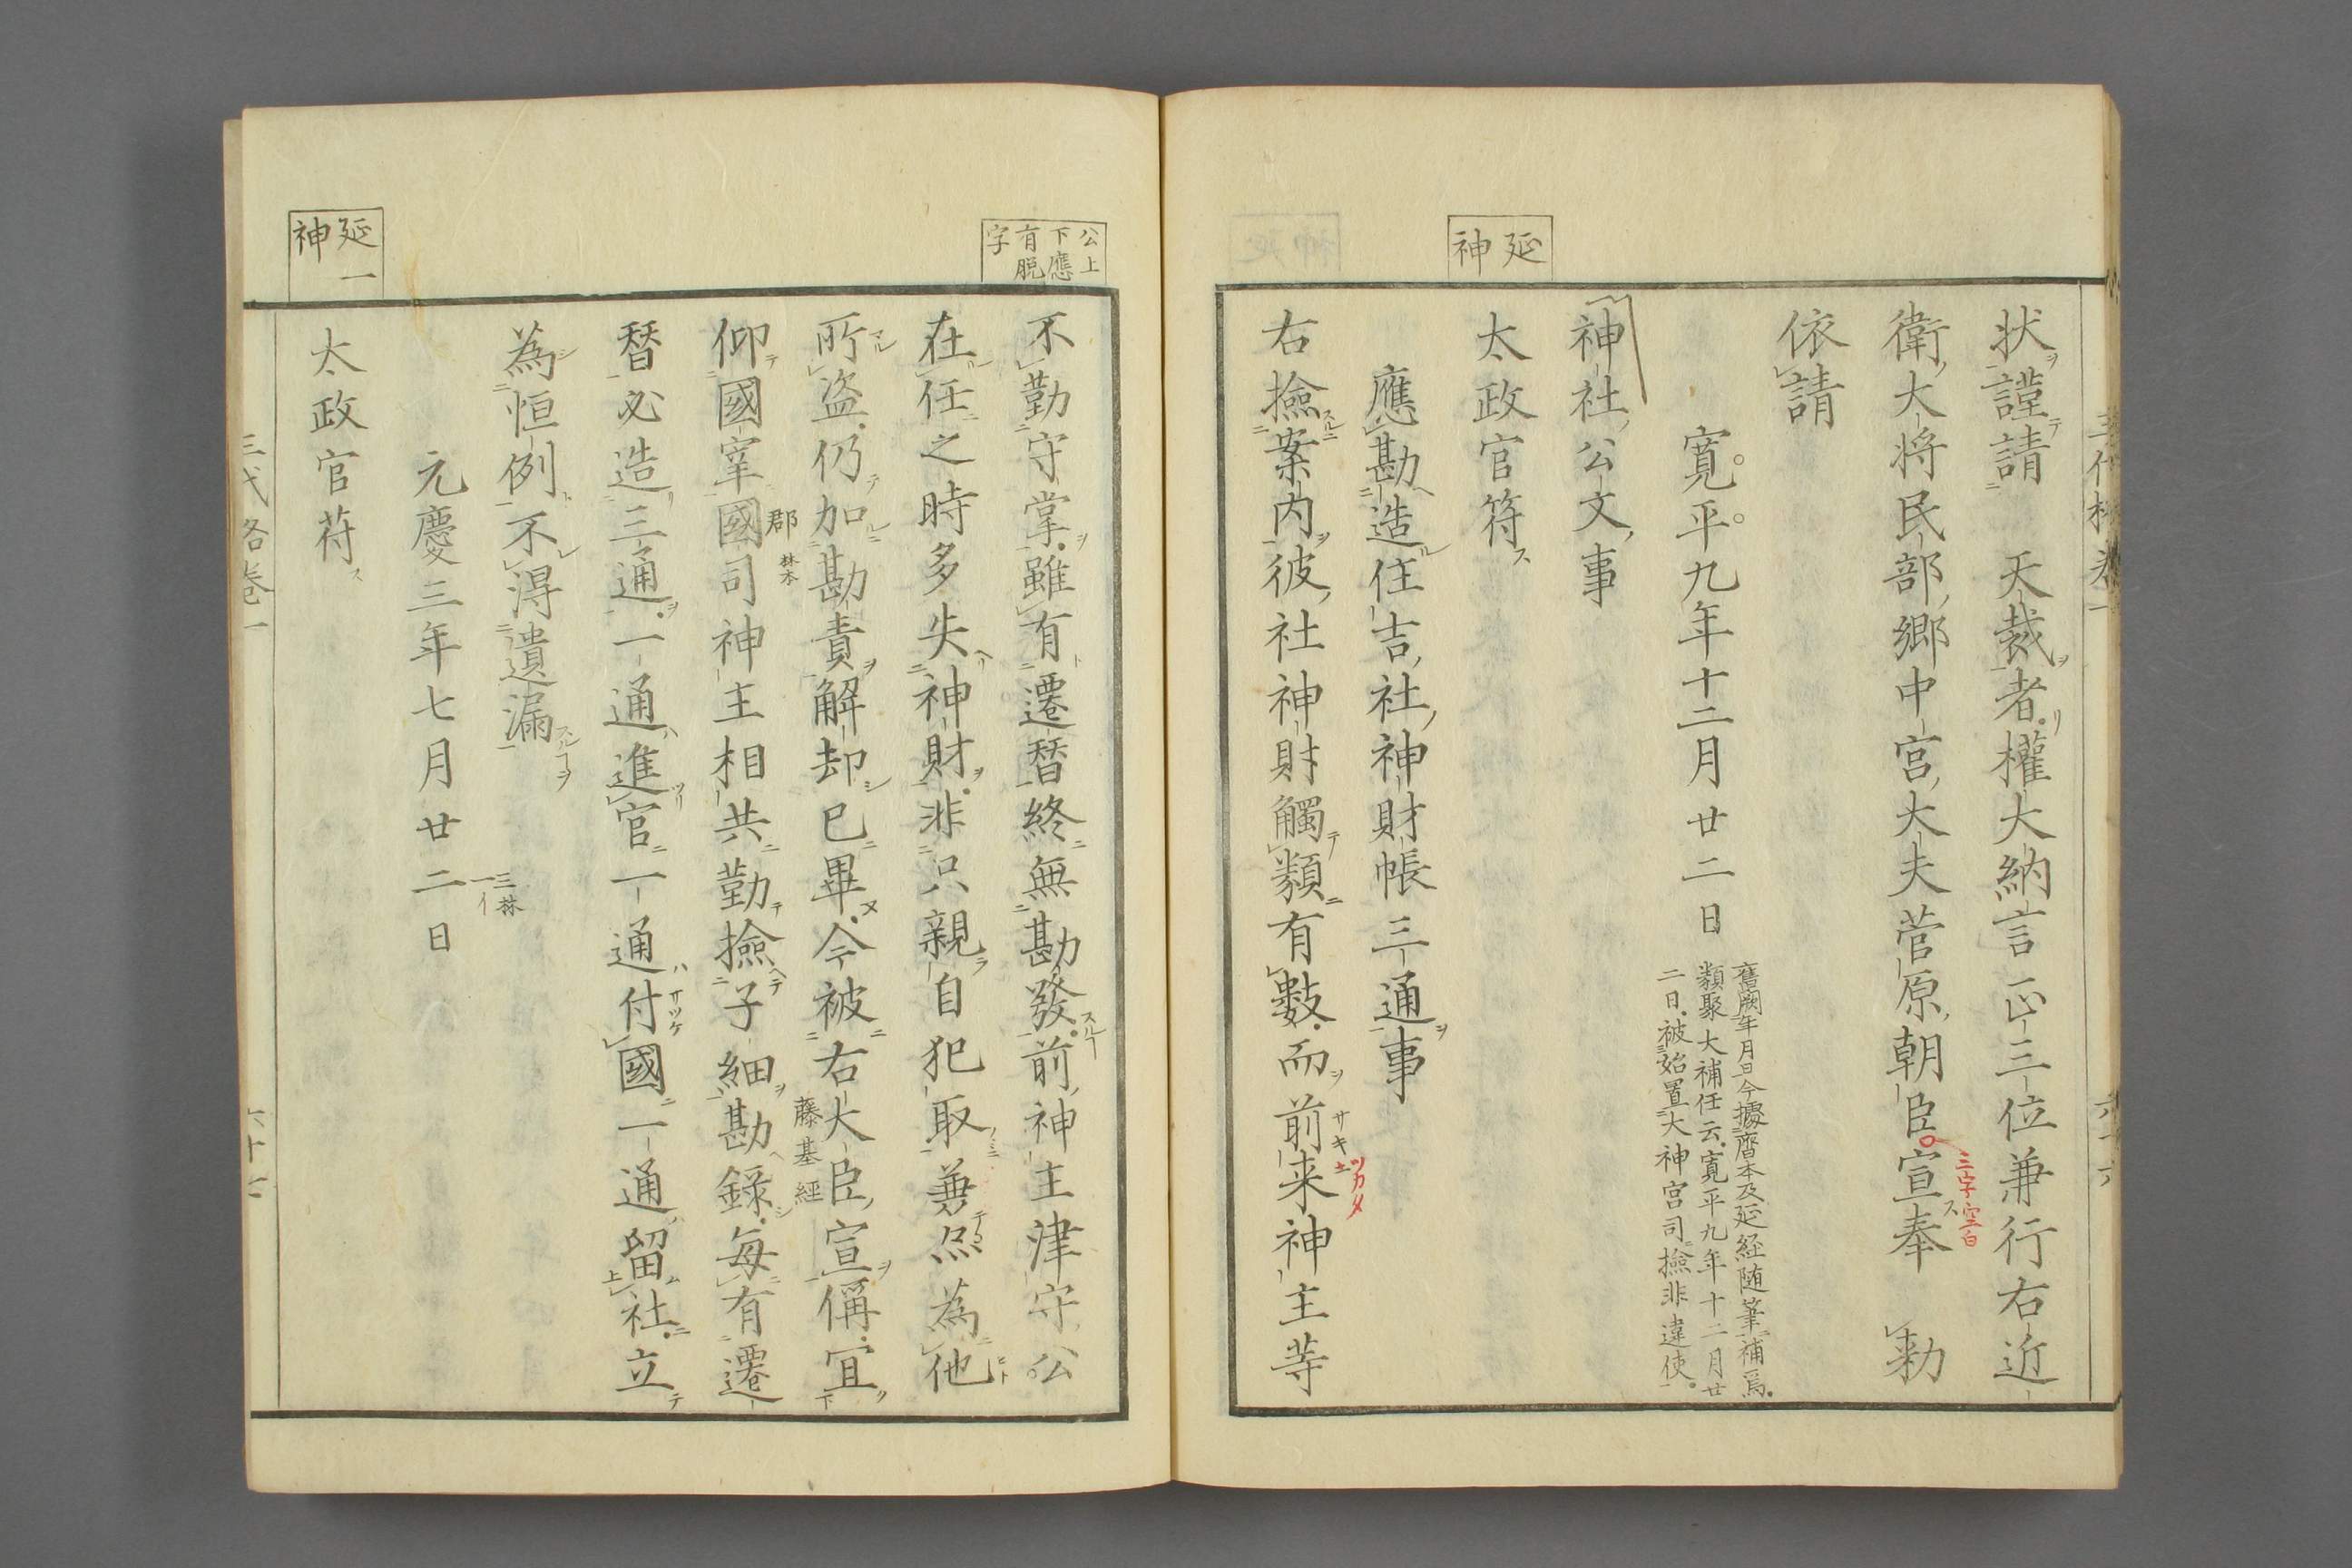 延
神
状謹請　天裁者權大納言正三位兼行右近
衛大将民部郷中宮大夫菅原朝臣宣奉　勅
三字空白
依請
寛平九年十二月廿二日
舊闕年月日今據齋本及延経随筆補焉
類聚大補任云寛平九年十二月廿
二日被始置大神宮司撿非違使
神社公文事
太政官符
應勘造住吉社神財帳三通事
右撿案内彼社神財觸類有數而前来神主等
公上
下應
有脱
字
不勤守掌雖有遷替終無勘發前神主津守公
在任之時多失神財非只親自犯取兼亦為他
所盗仍加勘責解却已畢今被右大臣宣偁宜
藤基經
仰國宰國司神主相共勤撿子細勘録毎有遷
郡林本
替必造三通一通進官一通付國一通留社立
為恒例不得遺漏
元慶三年七月廿二日
三林
一イ
延一
神
太政官符
三代格卷一
六十七